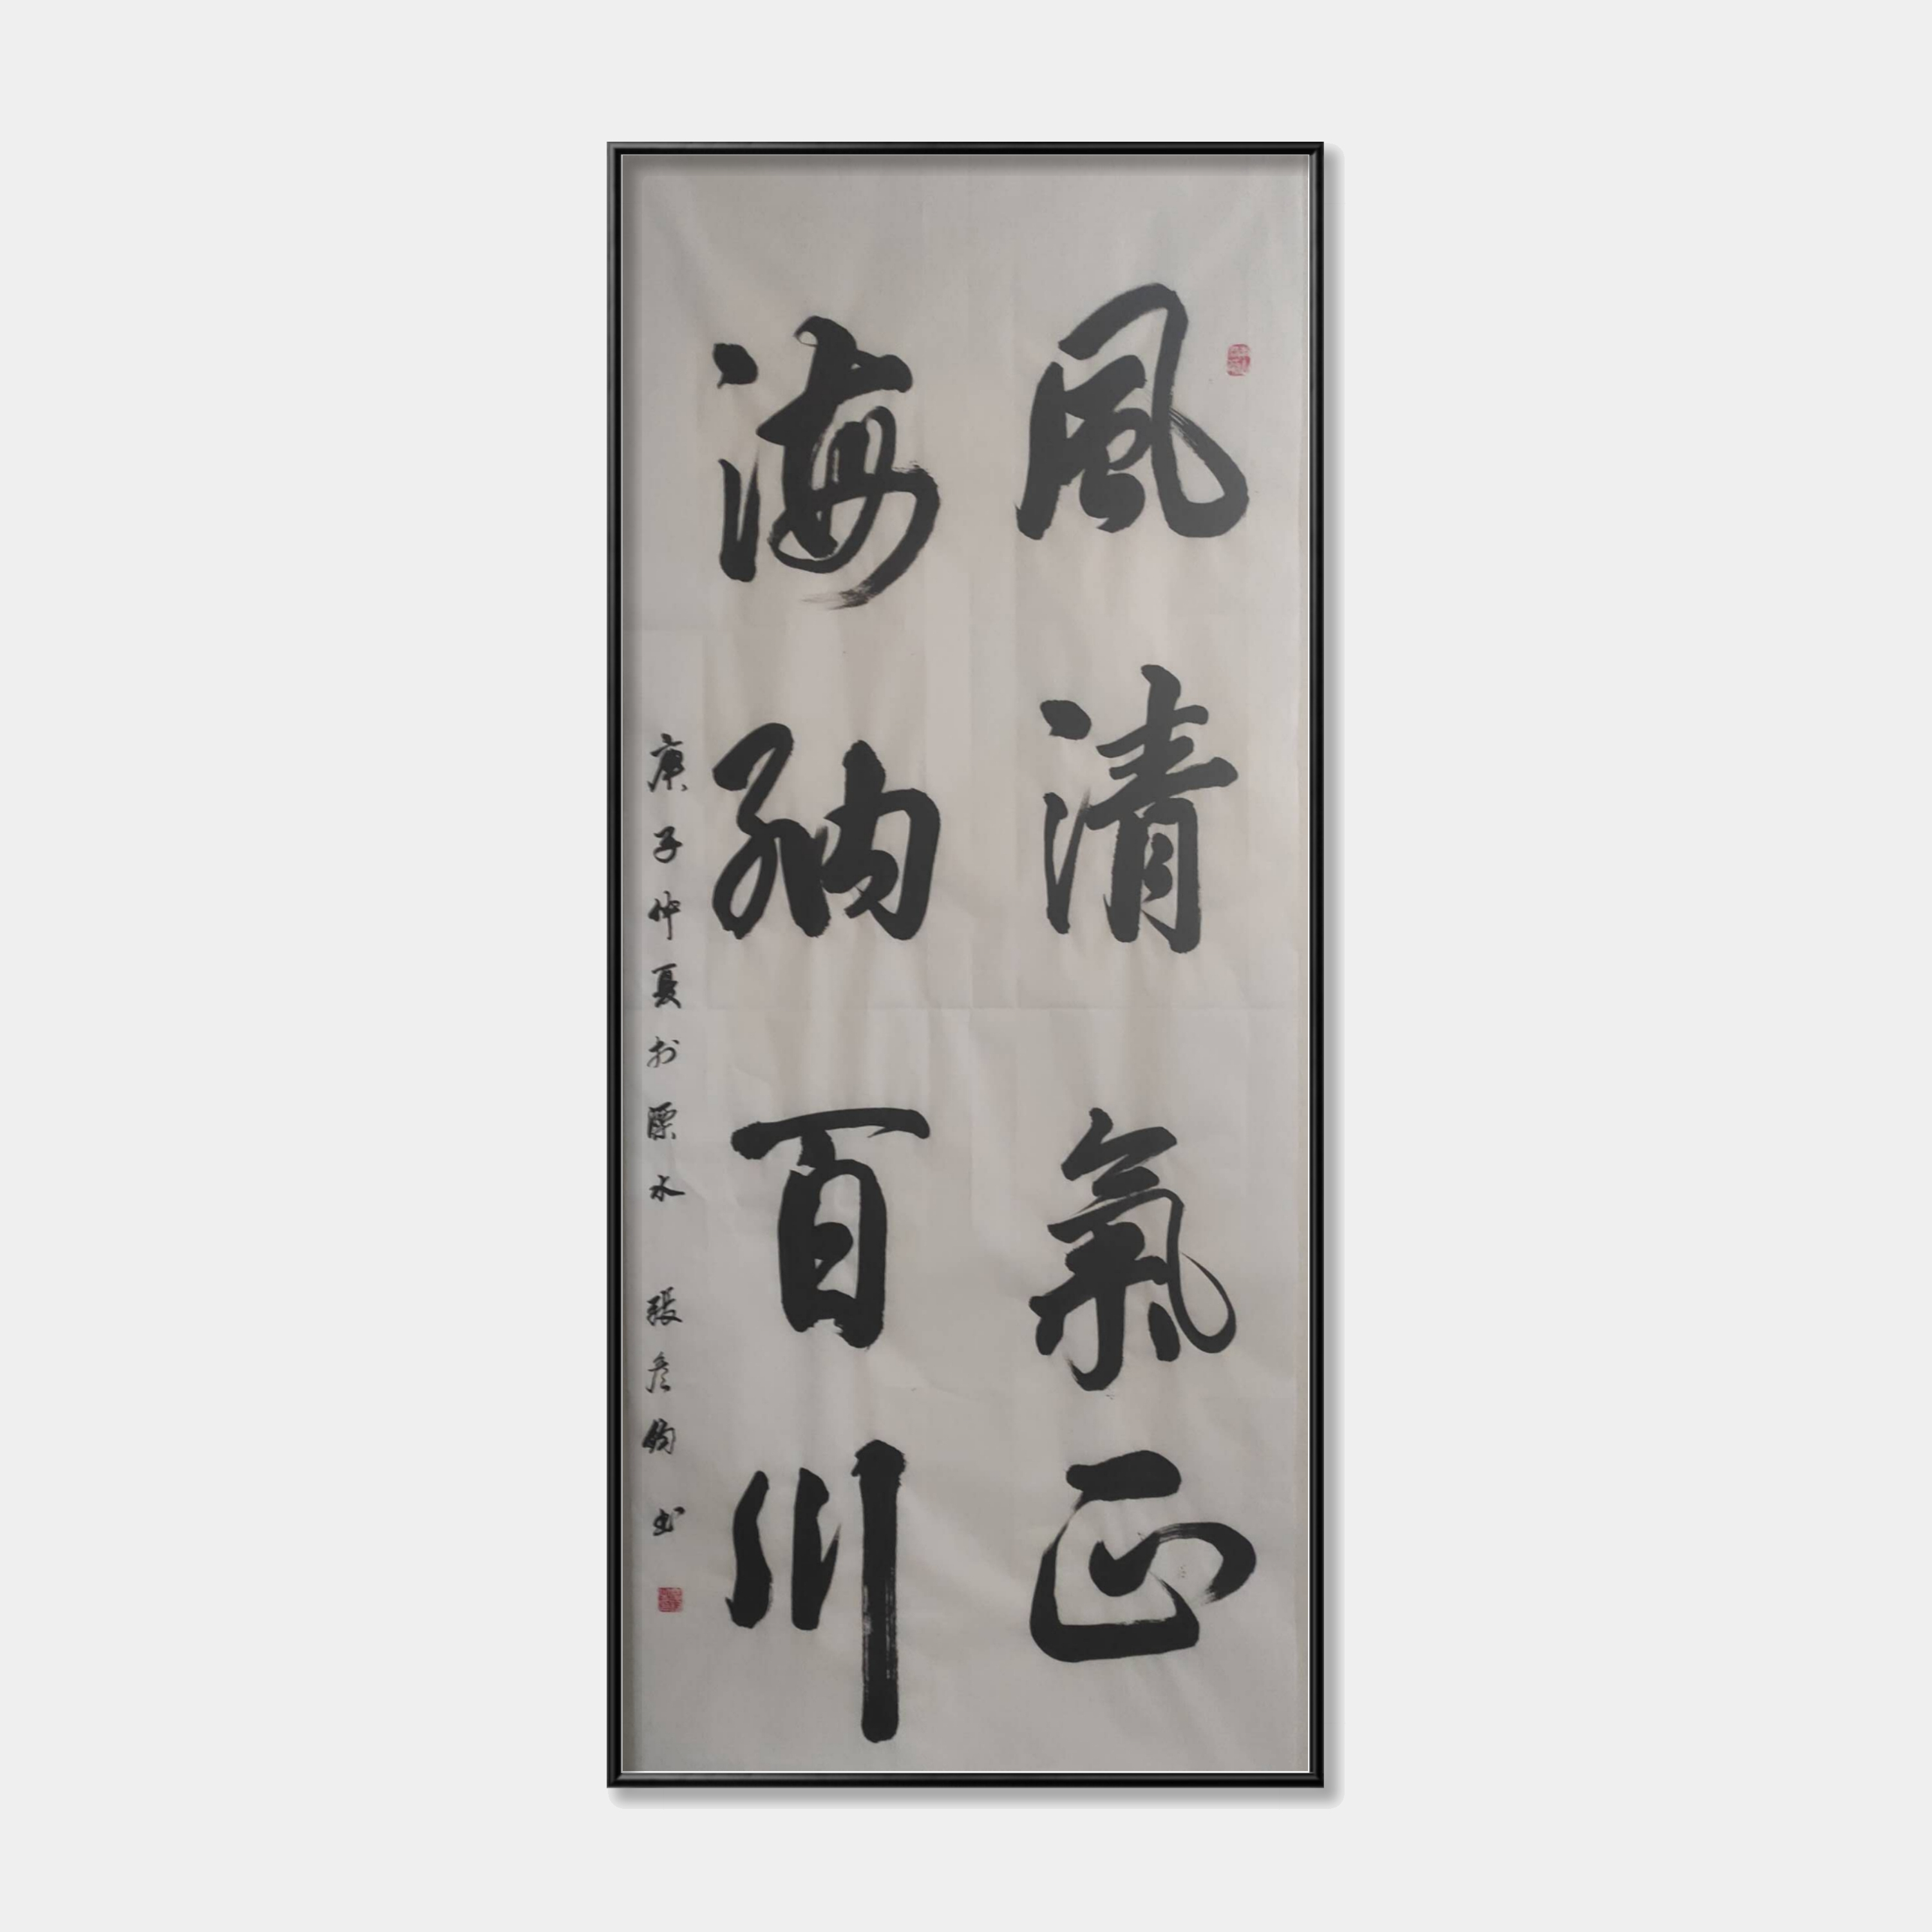 風清氣正
海納百川
庚子仲夏於溧水 張彥鈞書